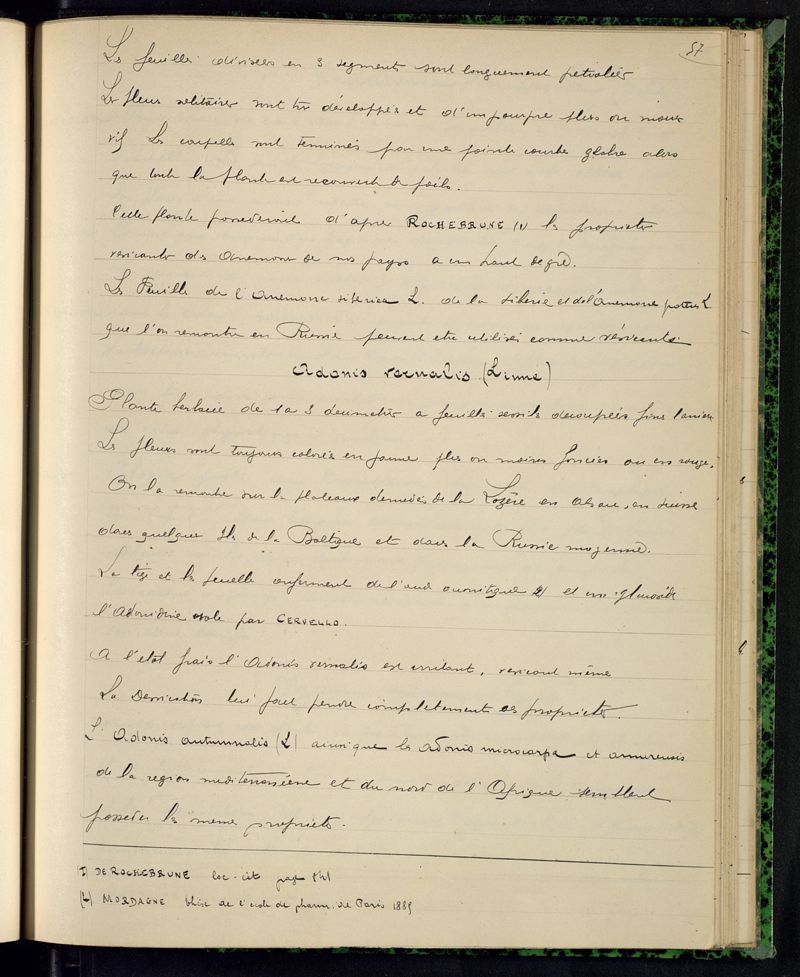 57
Les feuilles divisées en 3 segments sont longuement petiolées
Les fleurs solitaires sont très développées et d'un pourpre plus ou moins
vif Les carpelles sont terminés par une pointe courte glabre alors
que toute la plante est recouverte de poils.
Cette plante possederait d'apres ROCHEBRUNE (1) les proprietes
vesicantes des anemones de nos pays a un haut degré.
Les Feuilles de l'Anemone siberica L. de la Siberie et de l'Anemone patens L
que l'on rencontre en Russie peuvent etre utilisées comme vésicants.
Adonis vernalis (Linné)
Plante herbacée de 1 a 3 decimetres a feuilles sessiles decoupées fines lanieres
Les fleurs sont toujours colorées en jaune plus ou moins foncées ou en rouge.
On la rencontre sur les plateaux denudés de la Lozère en Alsace, en Suisse
dans quelques Iles de la Baltique et dans la Russie moyenne.
La tige et les feuilles renferment de l'acide aconitique (2) et un glucoside
l'Adonidine isolé par CERVELLO.
A l'etat frais l'Adonis vernalis est irritant, vesicant même
La Dessication lui fait perdre completement ses proprietes.
L'Adonis autumnalis (L) ainsi que les Adonis microcarpa et
de la region mediterranéene et du nord de l'Afrique semblent
posseder les meme proprietes.
(1) DE ROCHEBRUNE loc-cit page
(2) MORDAGNE thèse de l'ecole de pharm. de Paris 1885